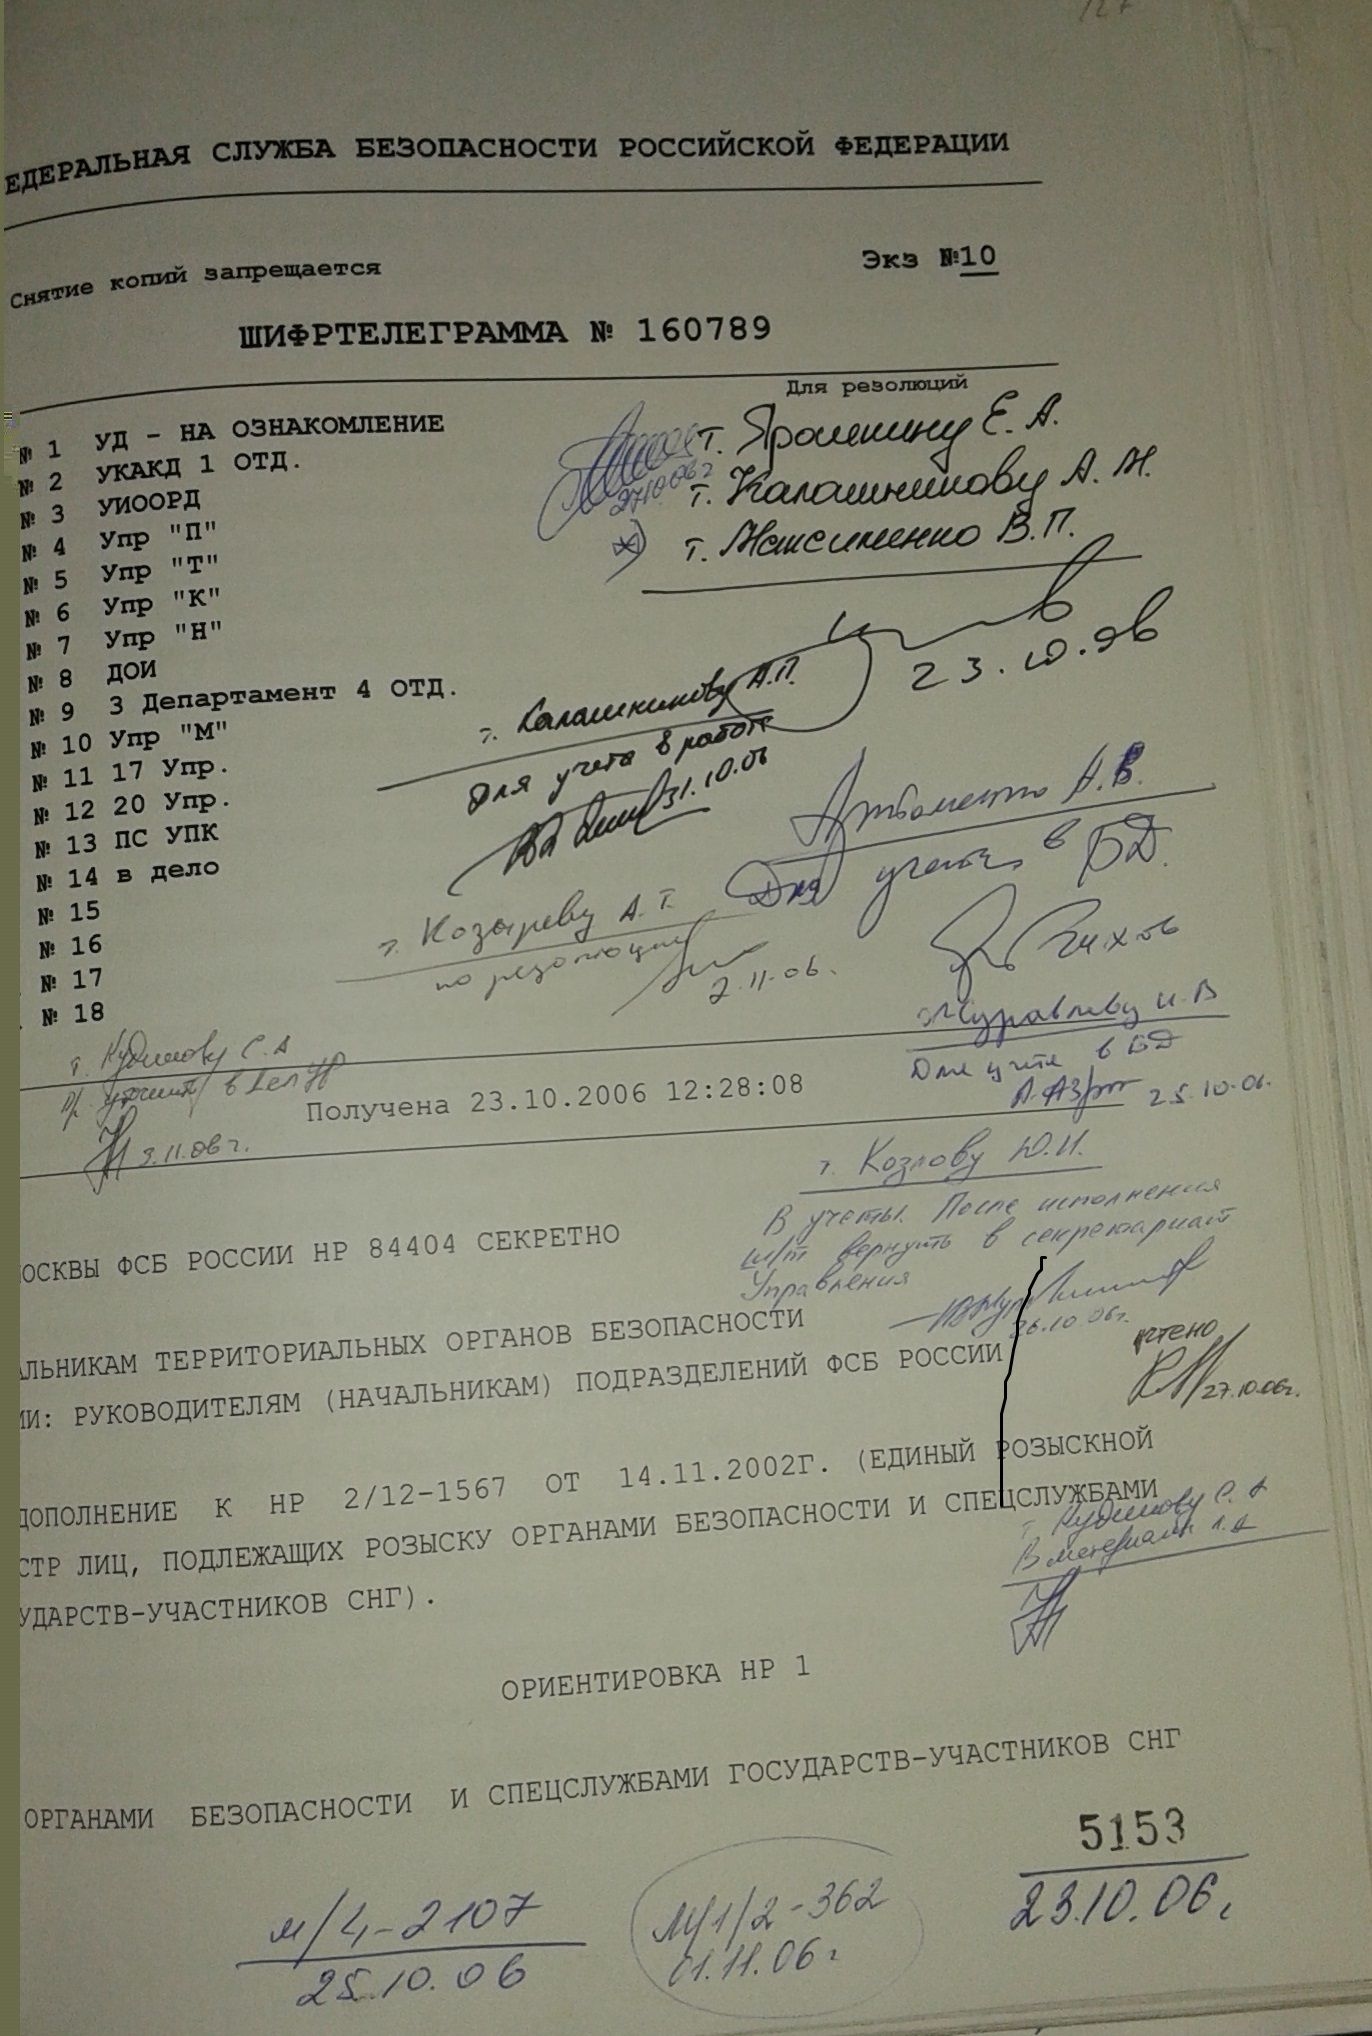 ЕДЕРАЛЬНАЯ СЛУЖБА БЕЗОПАСНОСТИ РОССИЙСКОЙ ФЕДЕРАЦИИ
Снятие копий запрещается
Экз №10
ШИФРТЕЛЕГРАММА № 160789
Для резолюций
№ 1 УД - НА ОЗНАКОМЛЕНИЕ
№ 2 УКАКД 1 ОТД.
№ 3 УИООРД
№ 4 Упр "П"
№ 5 Упр "Т"
№ 6 Упр "К"
№ 7 Упр "Н"
№ 8 ДОИ
№ 9 3 Департамент 4 ОТД.
№ 10 Упр "М"
№ 11 17 Упр.
№ 12 20 Упр.
№ 13 ПС УПК
№ 14 в дело
№ 15
№ 16
№ 17
№ 18
т. Ярошину Е. А.
т. Калашникову А.
т. Максименко В.П.
23.10.06
т. Калашникову А.П.
Для учета в работе
31.10.06
А.В.
Для учета в БД.
т. Козыреву А. Т.
по резолюции
2.11.06.
Журавлеву И. В
Для учета в БД
25.10.06.
т. Кудимову С. А
в дел
3.11.06г.
Получена 23.10.2006 12:28:08
т. Козлову Ю.И.
В учеты. После исполнения
ш/т вернуть в секретариат
Управления
26.10.06г.
ОСКВЫ ФСБ РОССИИ НР 84404 СЕКРЕТНО
АЛЬНИКАМ ТЕРРИТОРИАЛЬНЫХ ОРГАНОВ БЕЗОПАСНОСТИ
ИИ: РУКОВОДИТЕЛЯМ (НАЧАЛЬНИКАМ) ПОДРАЗДЕЛЕНИЙ ФСБ РОССИИ
учтено
27.10.06г.
ДОПОЛНЕНИЕ К НР 2/12-1567 ОТ 14.11.2002Г. (ЕДИНЫЙ РОЗЫСКНОЙ
СТР ЛИЦ, ПОДЛЕЖАЩИХ РОЗЫСКУ ОРГАНАМИ БЕЗОПАСНОСТИ И СПЕЦСЛУЖБАМИ
УДАРСТВ-УЧАСТНИКОВ СНГ).
т. Кудимову С. А
В материалы
ОРИЕНТИРОВКА НР 1
ОРГАНАМИ БЕЗОПАСНОСТИ И СПЕЦСЛУЖБАМИ ГОСУДАРСТВ-УЧАСТНИКОВ СНГ
5153
23.10.06г
м/4-2107
25.10.06
М/1/2-362
01.11.06г